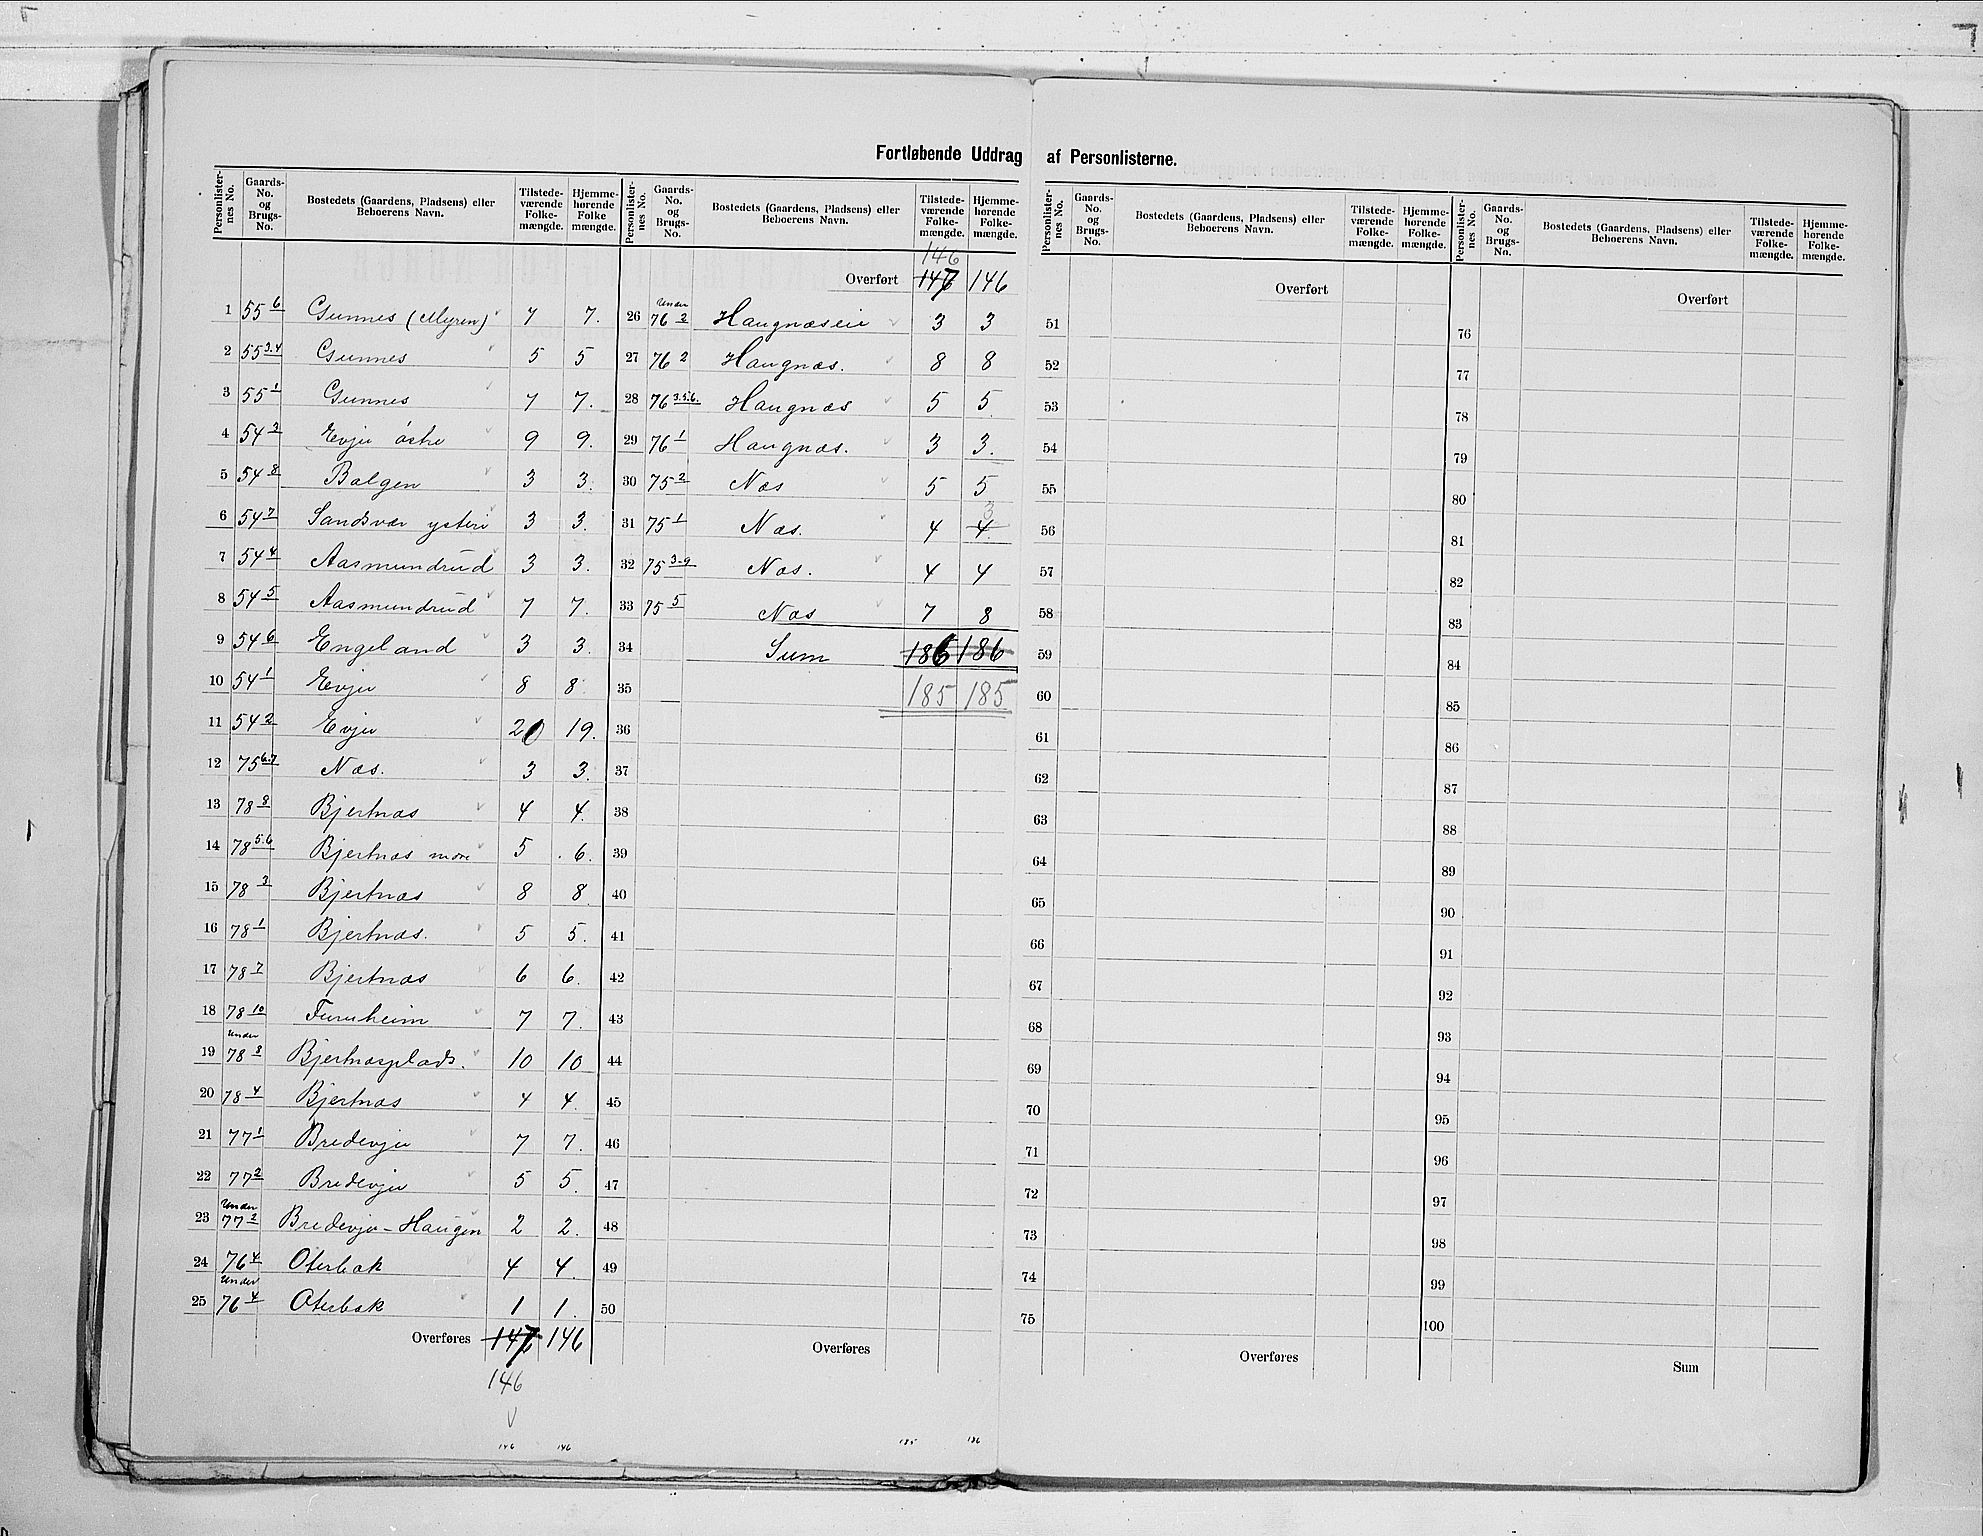 Fortløbende Uddrag af Personlisterne.
Personlister- nes No. | Gaards- No. og Brugs- No. | Bostedets (Gaardens, Pladsens) eller Beboerens Navn. | Tilstede- værende Folke- mængde. | Hjemme- hørende Folke mængde.
1 55 6 Gunnes (Myren) 7 7.
2 55 3.4 Gunnes 5 5
3 55 1 Gunnes 7 7.
4 54 3 Evju østre 9 9.
5 54 8 Bolgen 3 3.
6 54 7 Sandsvær ysteri 3 3.
7 54 4 Aasmundrud 3 3.
8 54 5 Aasmundrud 7 7.
9 54 6 Engeland 3 3.
10 54 1 Evju 8 8.
11 54 2 Evju 20 19.
12 75 6.7 Næs. 3 3.
13 78 8 Bjertnæs 4 4.
14 78 5.6 Bjertnæs 5 6.
15 78 3 Bjertnæs 8 8.
16 78 1 Bjertnæs. 5 5.
17 78 7 Bjertnæs 6 6.
18 78 10 Furuheim 7 7.
19 Under 78 8 Bjertnæsplads. 10 10
20 78 4 Bjertnæs 4 4.
21 77 1 Bredevju 7 7.
22 77 2 Bredevju 5 5.
23 Under 77 2 Bredevju-Haugen 2 2.
24 76 4 Oterbæk 4 4.
25 Under 76 4 Oterbæk 1 1.
Overføres 147 146
146
146 146
Personlister- nes No. | Gaards- No. og Brugs- No. | Bostedets (Gaardens, Pladsens) eller Beboerens Navn. | Tilstede- værende Folke- mængde. | Hjemme- hørende Folke- mængde.
146
Overført 147 146
26 Under 76 2 Haugnæseie 3 3
27 76 2 Haugnæs. 8 8
28 76 3.5.6. Haugnæs 5 5.
29 76 1 Haugnæs. 3 3.
30 75 2 Næs 5 5
31 75 1 Næs. 4 4 3
32 75 3-9 Næs. 4 4
33 75 5 Næs 7 8
34 Sum 186 186
35 185 185
36
37
38
39
40
41
42
43
44
45
46
47
48
49
50
Overføres
185 186
Personlister- nes No. | Gaards- No. og Brugs- No. | Bostedets (Gaardens, Pladsens) eller Beboerens Navn. | Tilstede- værende Folke- mængde. | Hjemme- hørende Folke- mængde.
Overført
51
52
53
54
55
56
57
58
59
60
61
62
63
64
65
66
67
68
69
70
71
72
73
74
75
Overføres
Personlister- nes No. | Gaards- No. og Brugs- No. | Bostedets (Gaardens, Pladsens) eller Beboerens Navn. | Tilstede- værende Folke- mængde. | Hjemme- hørende Folke- mængde.
Overført
76
77
78
79
80
81
82
83
84
85
86
87
88
89
90
91
92
93
94
95
96
97
98
99
100
Sum